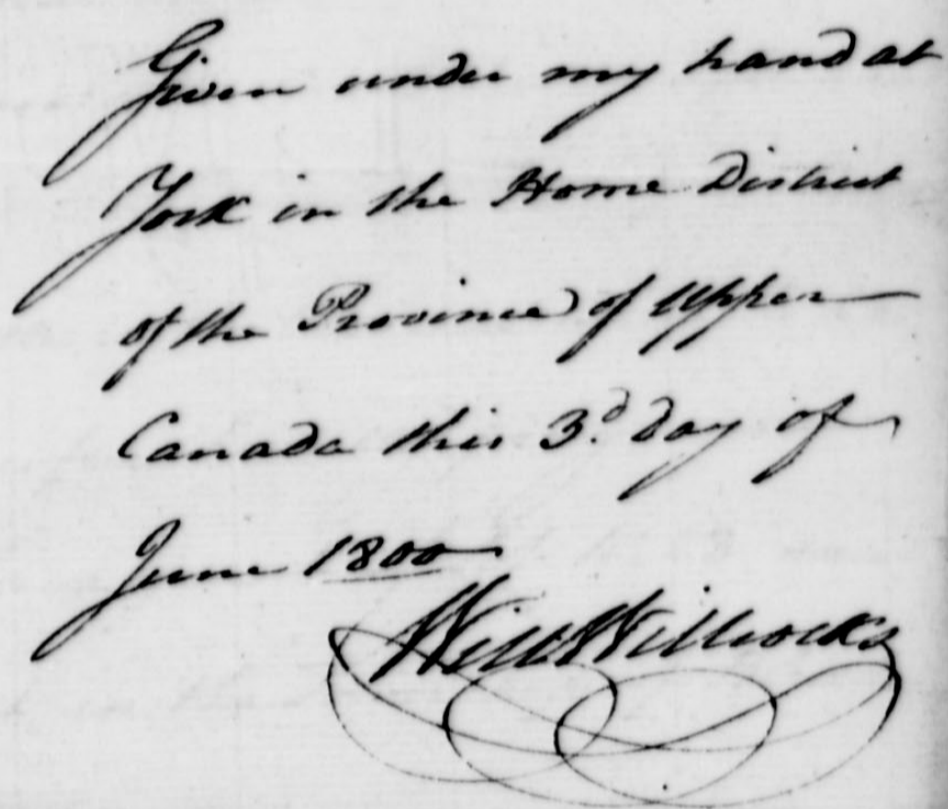 Given under my hand at
York in the Home District
of the Province of Upper
Canada this 3d. day of
June 1800
Will Willcocks